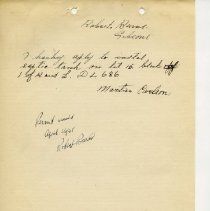 Robert Burns
Gibsons
I hereby apply to install
septic tank on lot 16 block
1 of H and L. D L 686
Martin Carlson
Permit issued
April
Robert Burns